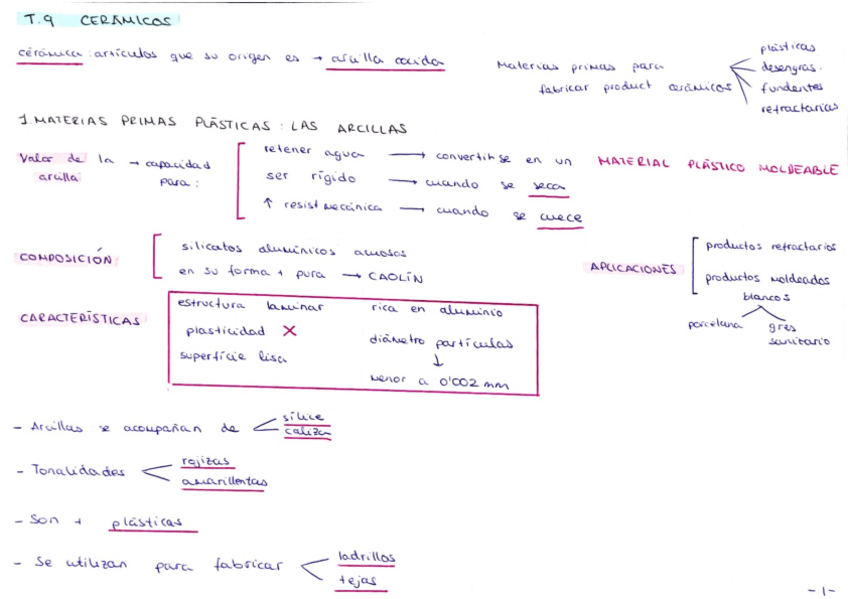 T.9 CERÁMICOS
cerámica: artículos que su origen es → arcilla cocida
Materias primas para fabricar product cerámicos
plásticas
desengras.
fundentes
refractarias
1. MATERIAS PRIMAS PLÁSTICAS: LAS ARCILLAS
Valor de la arcilla → capacidad para:
retener agua → convertirse en un MATERIAL PLÁSTICO MOLDEABLE
ser rígido → cuando se seca
↑ resist mecánica → cuando se cuece
COMPOSICIÓN
silicatos alumínicos acuosos
en su forma + pura → CAOLÍN
APLICACIONES
productos refractarios
productos moldeados blancos
porcelana
gres sanitario
CARACTERÍSTICAS
estructura laminar
rica en aluminio
plasticidad X
diámetro partículas
↓
superficie lisa
menor a 0'002 mm
- Arcillas se acompañan de
sílice
caliza
- Tonalidades
rojizas
amarillentas
- Son + plásticas
- Se utilizan para fabricar
ladrillos
tejas
- 1 -